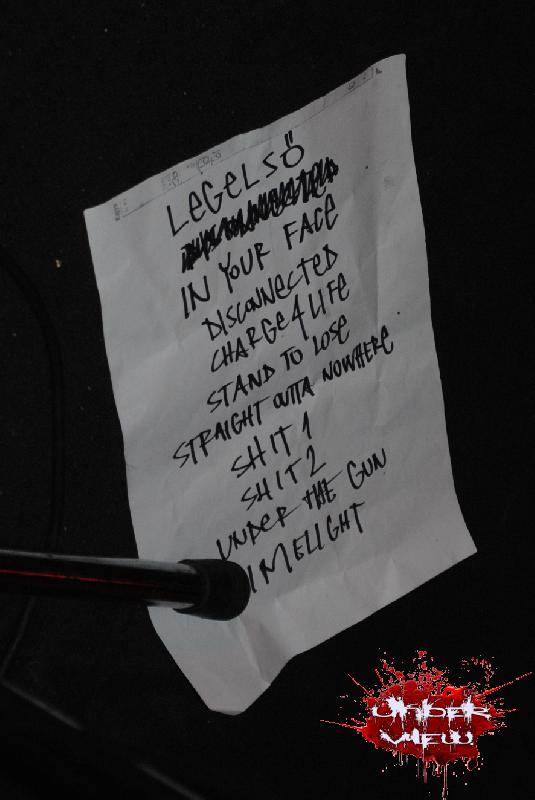 LEGELSŐ
IN YOUR FACE
DISCONNECTED
CHARGE 4 LIFE
STAND TO LOSE
STRAIGHT OUTTA NOWHERE
SHIT 1
SHIT 2
UNDER THE GUN
IMELIGHT
UNDER
VIEW